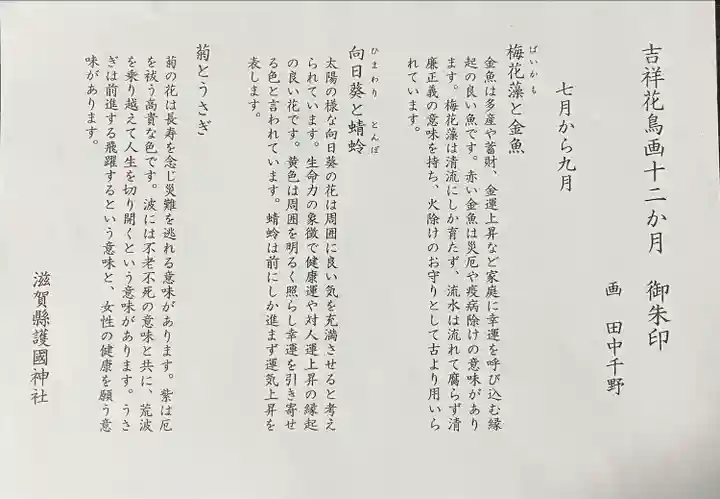 吉祥花鳥画十二か月　御朱印
画　田中千野
七月から九月
ばいかも
梅花藻と金魚
金魚は多産や蓄財、金運上昇など家庭に幸運を呼び込む縁
起の良い魚です。赤い金魚は災厄や疫病除けの意味があり
ます。梅花藻は清流にしか育たず、流水は流れて腐らず清
廉正義の意味を持ち、火除けのお守りとして古より用いら
れています。
ひまわり　とんぼ
向日葵と蜻蛉
太陽の様な向日葵の花は周囲に良い気を充満させると考え
られています。生命力の象徴で健康運や対人運上昇の縁起
の良い花です。黄色は周囲を明るく照らし幸運を引き寄せ
る色と言われています。蜻蛉は前にしか進まず運気上昇を
表します。
菊とうさぎ
菊の花は長寿を念じ災難を逃れる意味があります。紫は厄
を祓う高貴な色です。波には不老不死の意味と共に、荒波
を乗り越えて人生を切り開くという意味があります。うさ
ぎは前進する飛躍するという意味と、女性の健康を願う意
味があります。
滋賀縣護國神社